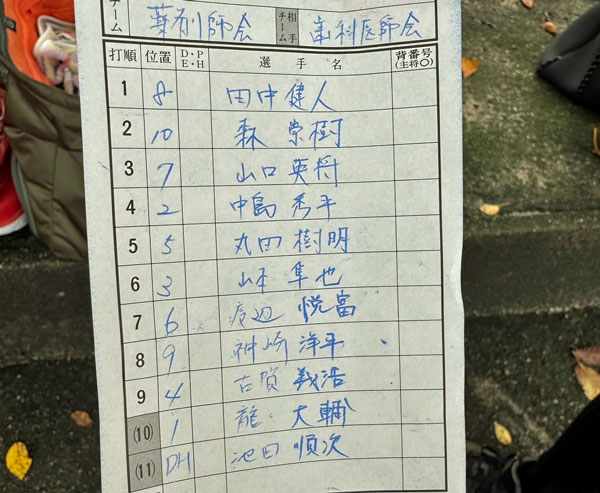 チーム 薬剤師会 相手チーム 歯科医師会
打順 位置 D・P E・H 選手名 背番号 (主将○)
1 8 田中 健人
2 10 森 崇樹
3 7 山口 英将
4 2 中島 秀平
5 5 丸田 樹明
6 3 山本 隼也
7 6 渡辺 悦富
8 9 神崎 洋平
9 4 古賀 義浩
(10) 1 龍 大輔
(11) DH 池田 順次